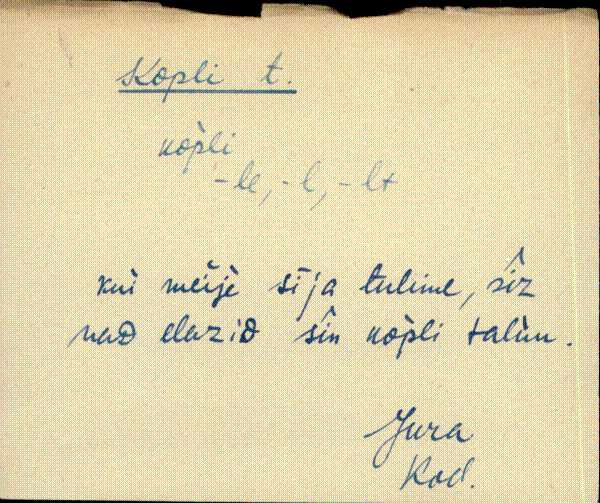 Kopli t.
kòpli
-le, -l, -lt
kui meije sīja tulime, sîz
nad elazid sîn kòpli talun.
Jura
Kod.